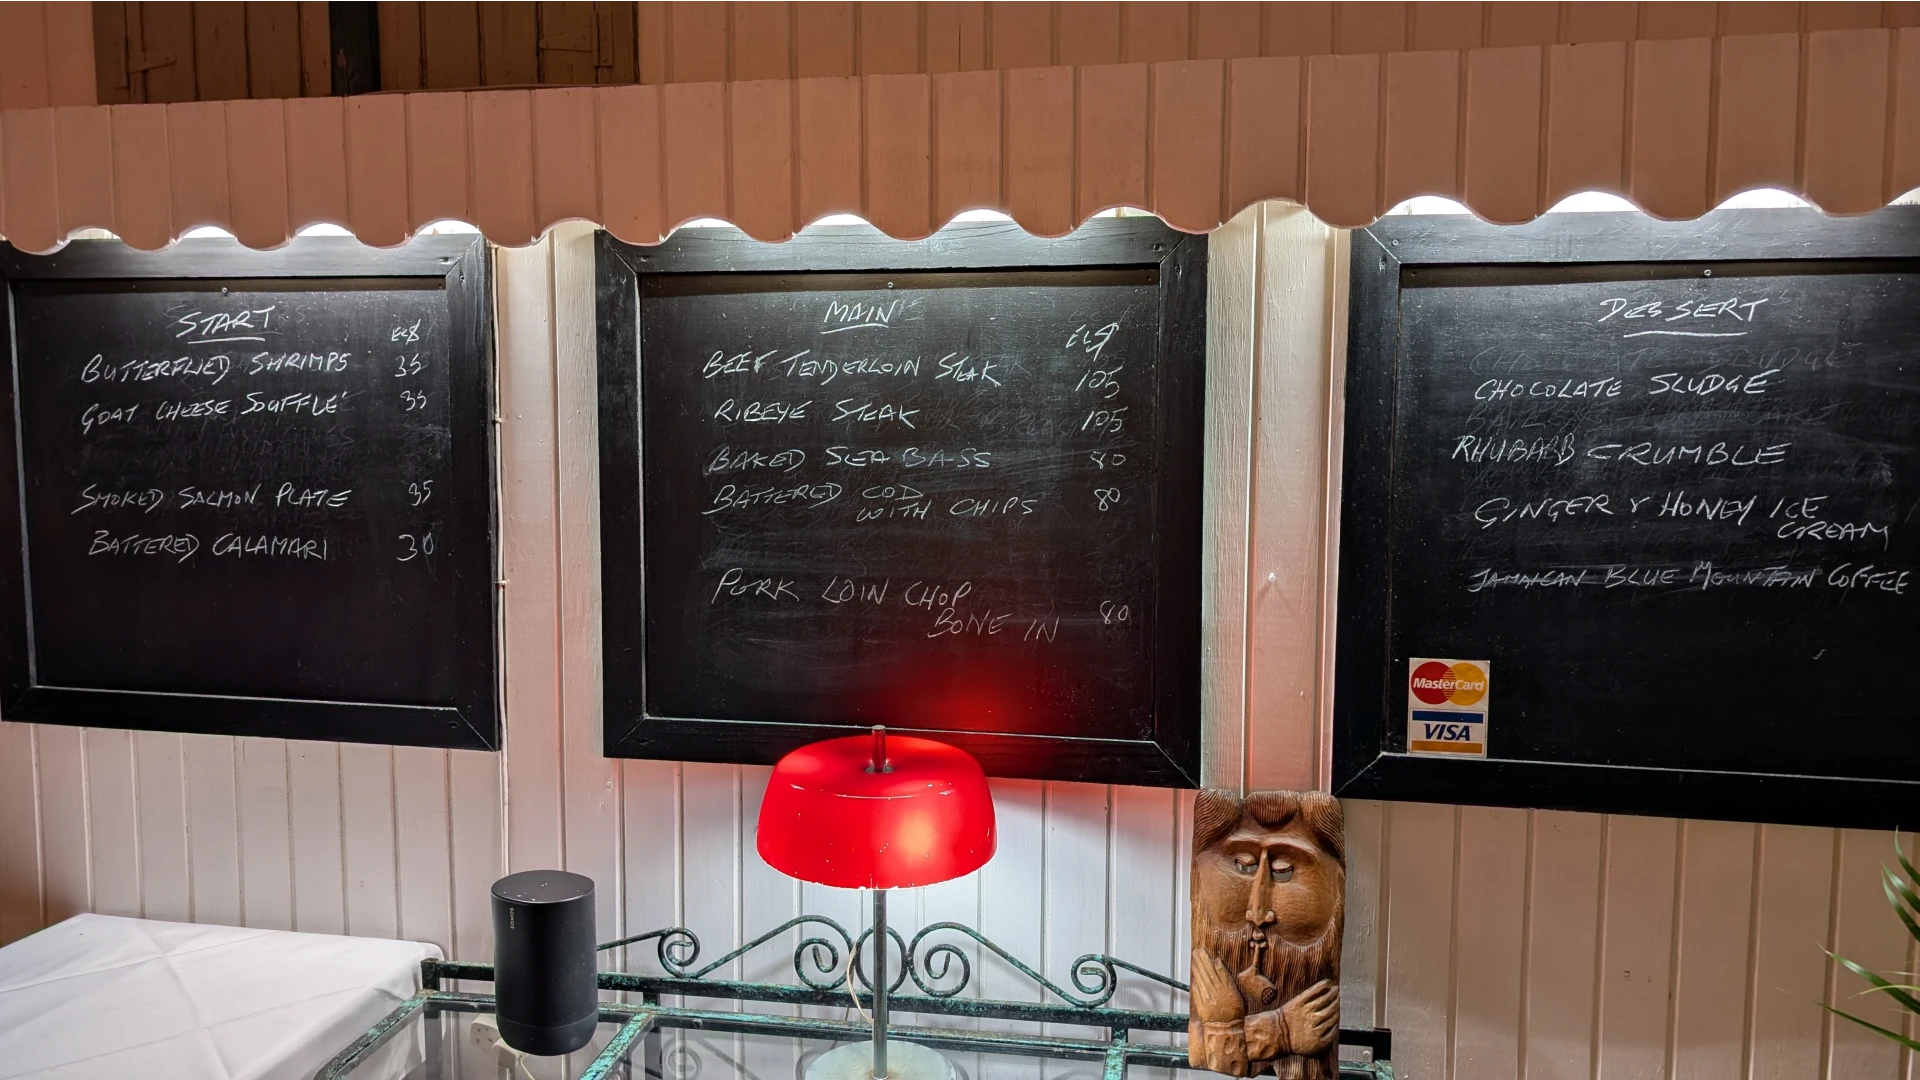 START
EC$
BUTTERFLIED SHRIMPS 35
GOAT CHEESE SOUFFLÉ 35
SMOKED SALMON PLATE 35
BATTERED CALAMARI 30
MAIN
EC$
BEEF TENDERLOIN STEAK 105
RIBEYE STEAK 105
BAKED SEA BASS 80
BATTERED COD 80
WITH CHIPS
PORK LOIN CHOP
BONE IN 80
DESSERT
CHOCOLATE SLUDGE
RHUBARB CRUMBLE
GINGER & HONEY ICE
CREAM
JAMAICAN BLUE MOUNTAIN COFFEE
MasterCard
VISA
SONOS